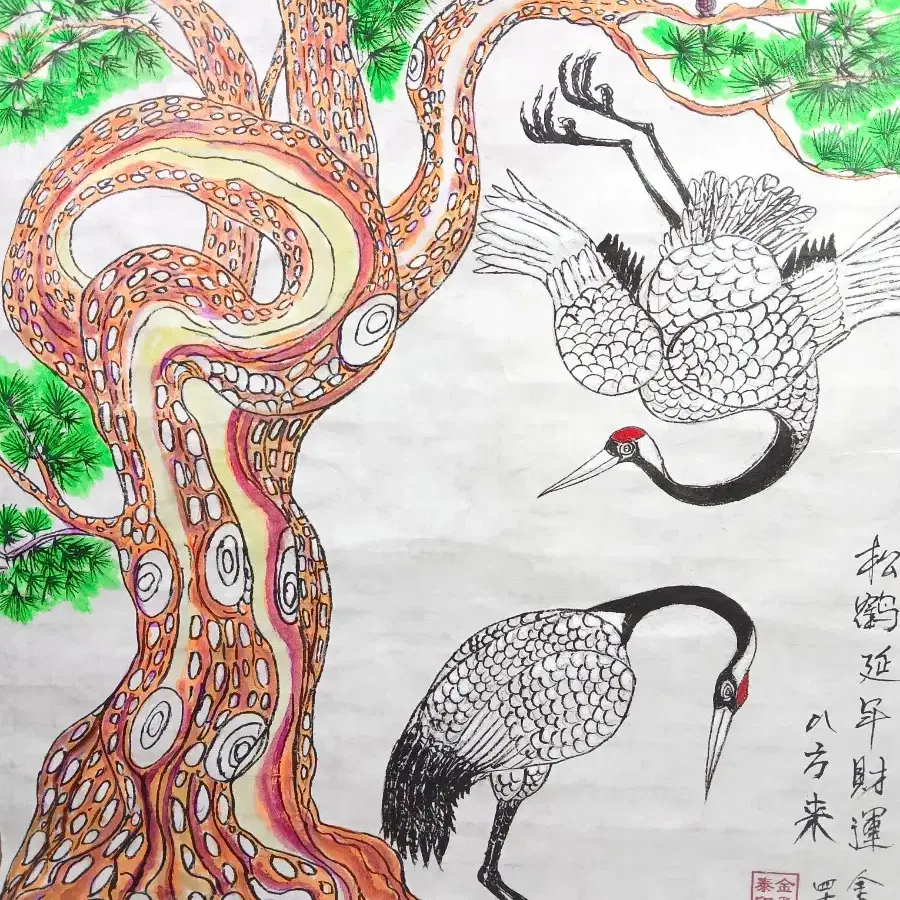 松鹤延年財運
八方来